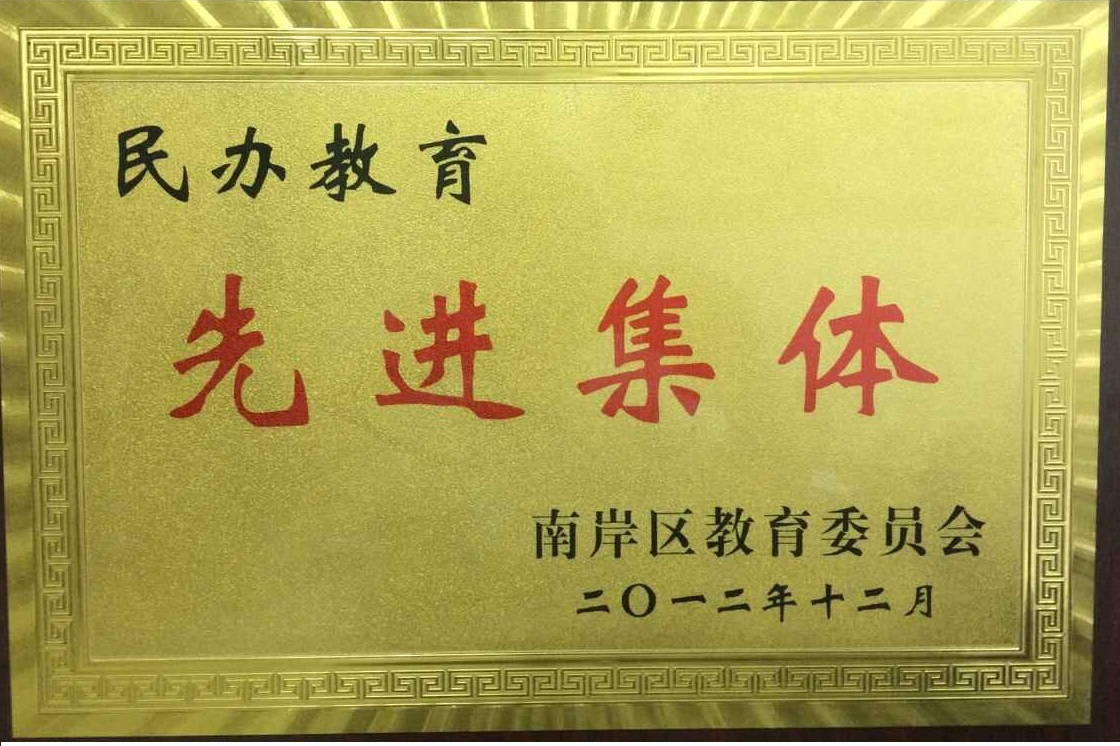 民办教育
先进集体
南岸区教育委员会
二〇一二年十二月